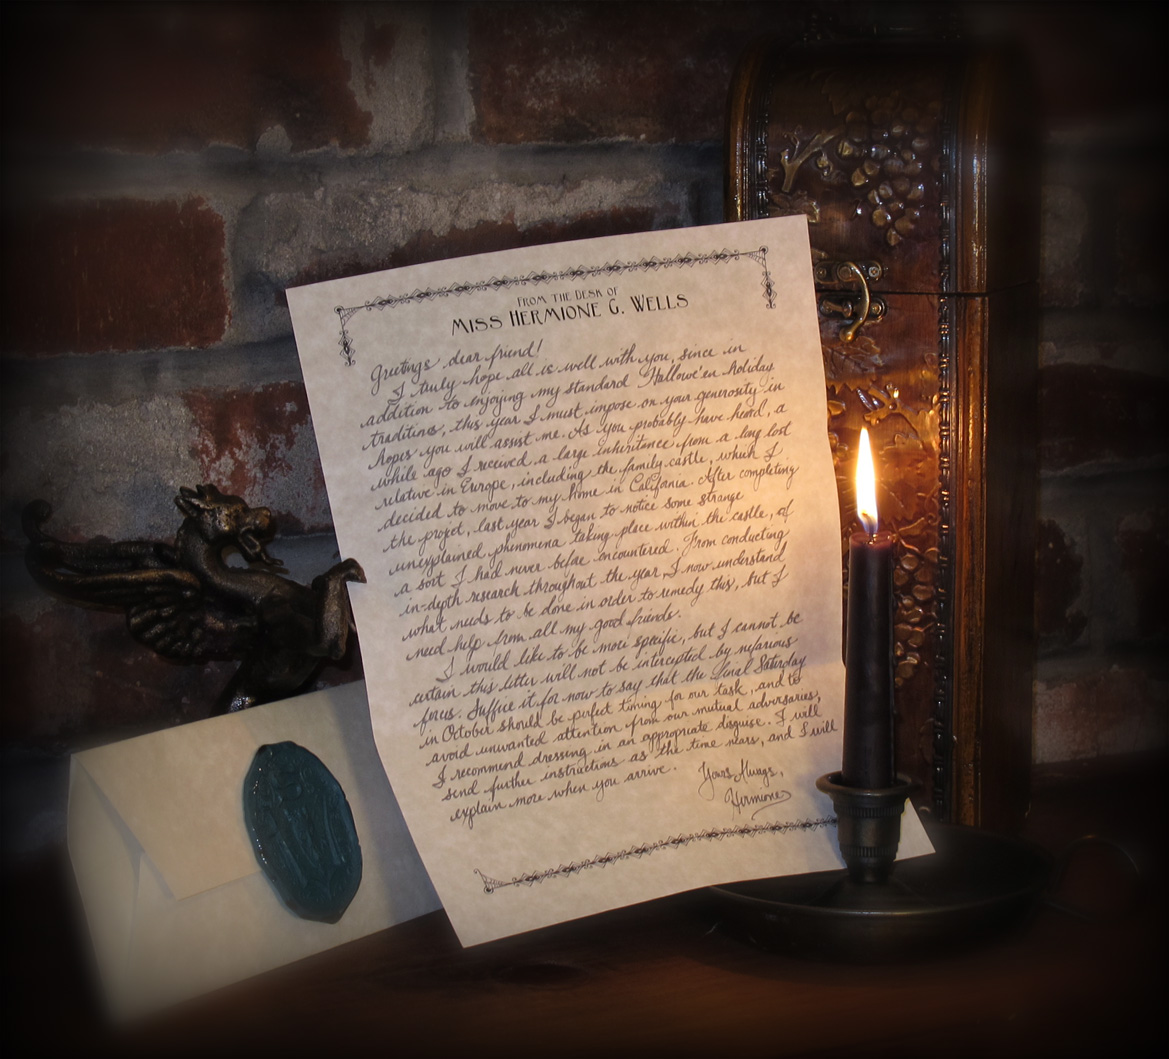 FROM THE DESK OF
MISS HERMIONE G. WELLS
Greetings dear friend!
I truly hope all is well with you, since in
addition to enjoying my standard Hallowe'en holiday
traditions, this year I must impose on your generosity in
hopes you will assist me. As you probably have heard, a
while ago I received a large inheritance from a long lost
relative in Europe, including the family castle, which I
decided to move to my home in California. After completing
the project, last year I began to notice some strange
unexplained phenomena taking place within the castle, of
a sort I had never before encountered. From conducting
in-depth research throughout the year I now understand
what needs to be done in order to remedy this, but I
need help from all my good friends.
I would like to be more specific, but I cannot be
certain this letter will not be intercepted by nefarious
forces. Suffice it for now to say that the final Saturday
in October should be perfect timing for our task, and to
avoid unwanted attention from our mutual adversaries,
I recommend dressing in an appropriate disguise. I will
send further instructions as the time nears, and I will
explain more when you arrive.
Yours Always,
Hermione